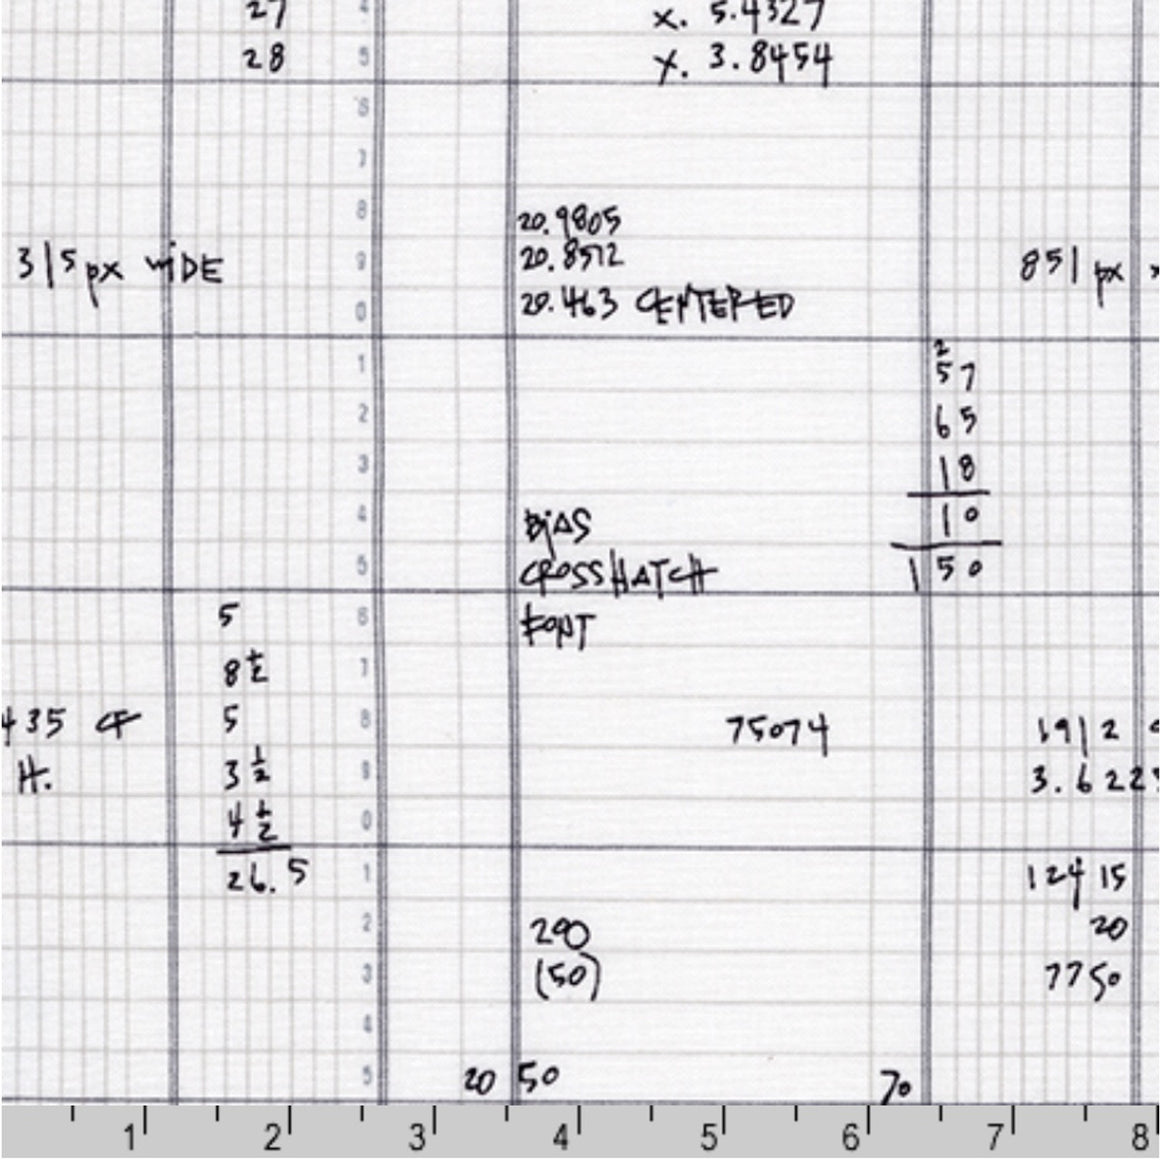 27 x. 5.4327
28 x. 3.8454
20.9805
315 px wiDE 20.8572 851 px x
20.463 CENTERED
2
57
65
18
BiAS 10
CROSSHATCH 150
5 FONT
8 1/2
435 CF 5 75074 1912
H. 3 1/2 3.622
4 1/2
26.5 124 15
290 20
(50) 7750
20 50 70
4
5
6
7
8
9
0
1
2
3
4
5
6
7
8
9
0
1
2
3
4
5
1 2 3 4 5 6 7 8